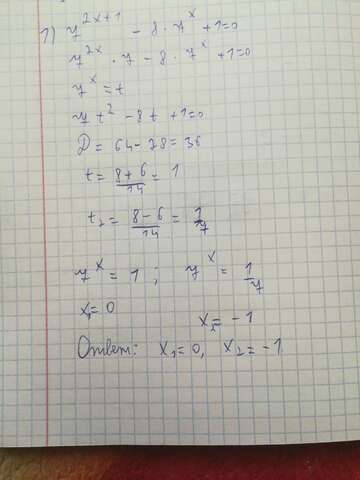 1) 7^{2x+1} - 8 · 7^x + 1 = 0
7^{2x} · 7 - 8 · 7^x + 1 = 0
7^x = t
7t^2 - 8t + 1 = 0
D = 64 - 28 = 36
t = \frac{8+6}{14} = 1
t_2 = \frac{8-6}{14} = \frac{1}{7}
7^x = 1 ; 7^x = \frac{1}{7}
x_1 = 0
x_2 = -1
Ответ: x_1 = 0, x_2 = -1